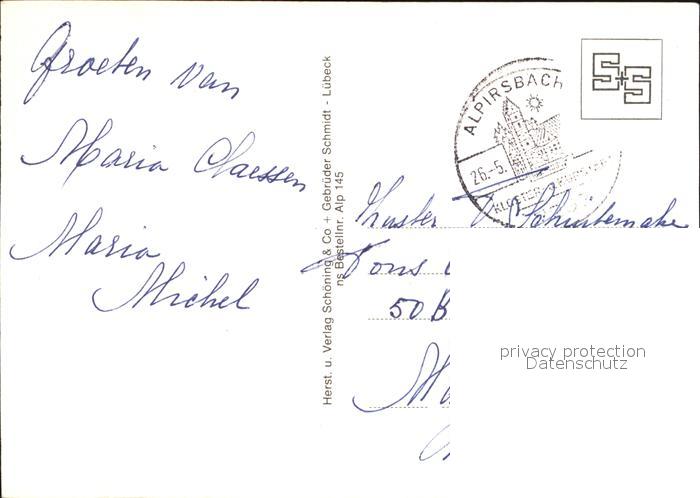 Groeten van
Maria Claessen
Maria
Michel
Herst. u. Verlag Schöning & Co + Gebrüder Schmidt - Lübeck
ns Bestellnr. Alp 145
S+S
ALPIRSBACH
26.-5.
KLOSTER
Zuster V Schutemake
Pons
50 B
privacy protection
Datenschutz